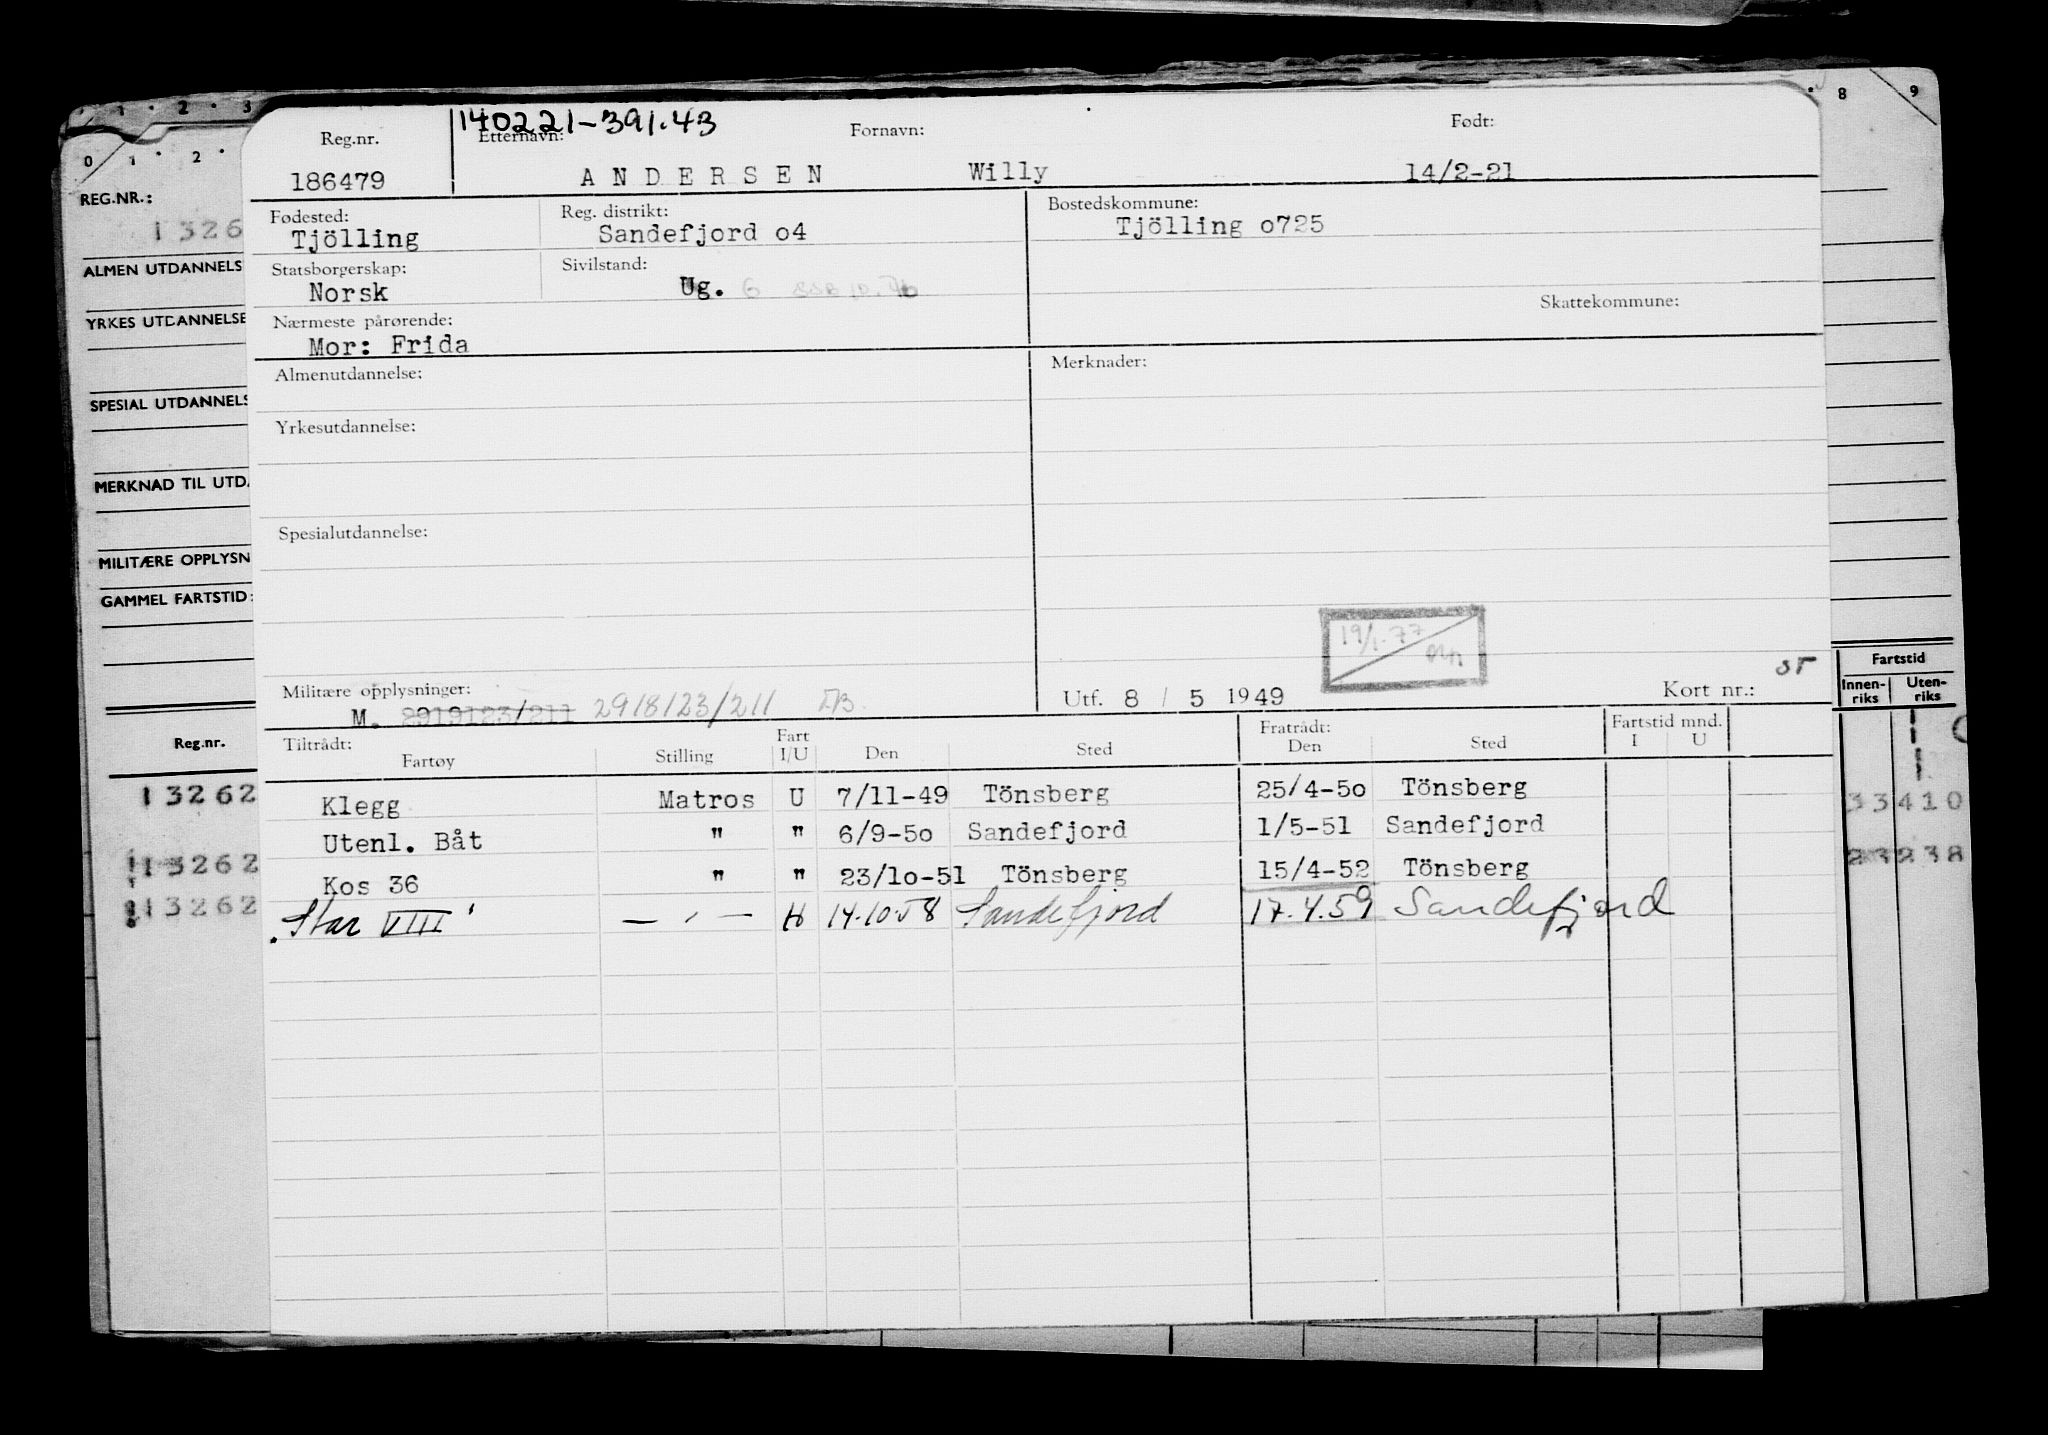 140221-391.43
Reg.nr. Etternavn: Fornavn: Født:
186479 ANDERSEN Willy 14/2-21
Fødested: Reg. distrikt: Bostedskommune:
Tjölling Sandefjord o4 Tjölling o725
Statsborgerskap: Sivilstand:
Norsk Ug. 6
Skattekommune:
Nærmeste pårørende:
Mor: Frida
Almenutdannelse: Merknader:
Yrkesutdannelse:
Spesialutdannelse:
19/1-77
Militære opplysninger: Utf. 8 / 5 1949 Kort nr.:
M. 2919123/211 2918/23/211
Tiltrådt: Fratrådt: Fartstid mnd.
Fartøy Stilling Fart I/U Den Sted Den Sted I U
Klegg Matros U 7/11-49 Tönsberg 25/4-5o Tönsberg
Utenl. Båt " " 6/9-5o Sandefjord 1/5-51 Sandefjord
Kos 36 " " 23/1o-51 Tönsberg 15/4-52 Tönsberg
Star VIII — " — H 14.10.58 Sandefjord 17.4.59 Sandefjord
1 2 3
0 1 2
REG.NR.:
1326
ALMEN UTDANNELS
YRKES UTDANNELSE
SPESIAL UTDANNELS
MERKNAD TIL UTD
MILITÆRE OPPLYSN
GAMMEL FARTSTID:
Reg.nr.
13262
13262
13262
8 9
Fartstid
Innen-riks Uten-riks
33410
23238